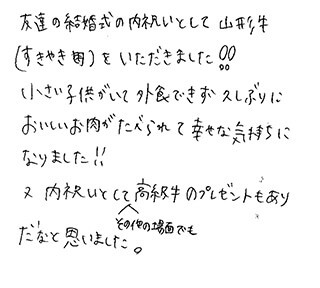 友達の結婚式の内祝いとして 山形牛
(すきやき用)を いただきました!!
小さい子供がいて 外食できず 久しぶりに
おいしいお肉がたべられて 幸せな気持ちに
なりました!!
又 内祝いとして高級牛のプレゼントもあり
その他の場面でも
だなと思いました。